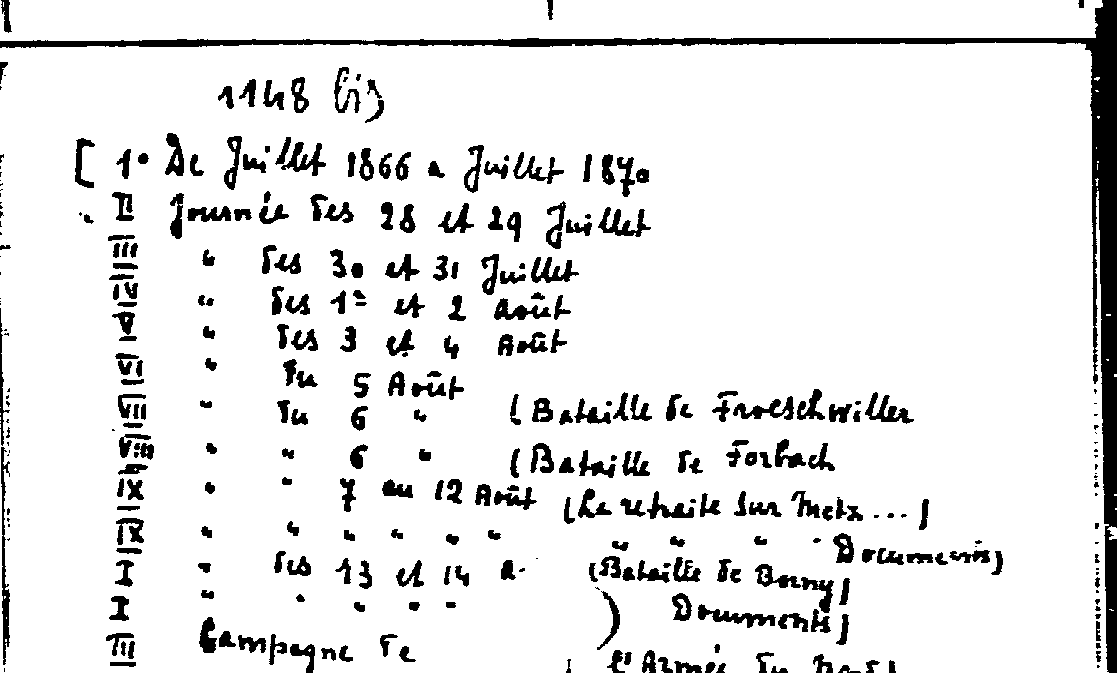 1148 bis
[ 1° De Juillet 1866 a Juillet 1870
II Journée des 28 et 29 Juillet
III " des 30 et 31 Juillet
IV " des 1er et 2 Août
V " des 3 et 4 Août
VI " du 5 Août
VII " du 6 " (Bataille de Froeschwiller
VIII " " 6 " (Bataille de Forbach
IX " " 7 au 12 Août (La retraite sur Metz...)
IX " " " " " " " " " Documents)
I " des 13 et 14 A. (Bataille de Borny)
I " " " " " ) Documents)
III Campagne de ( l'Armée du Nord)